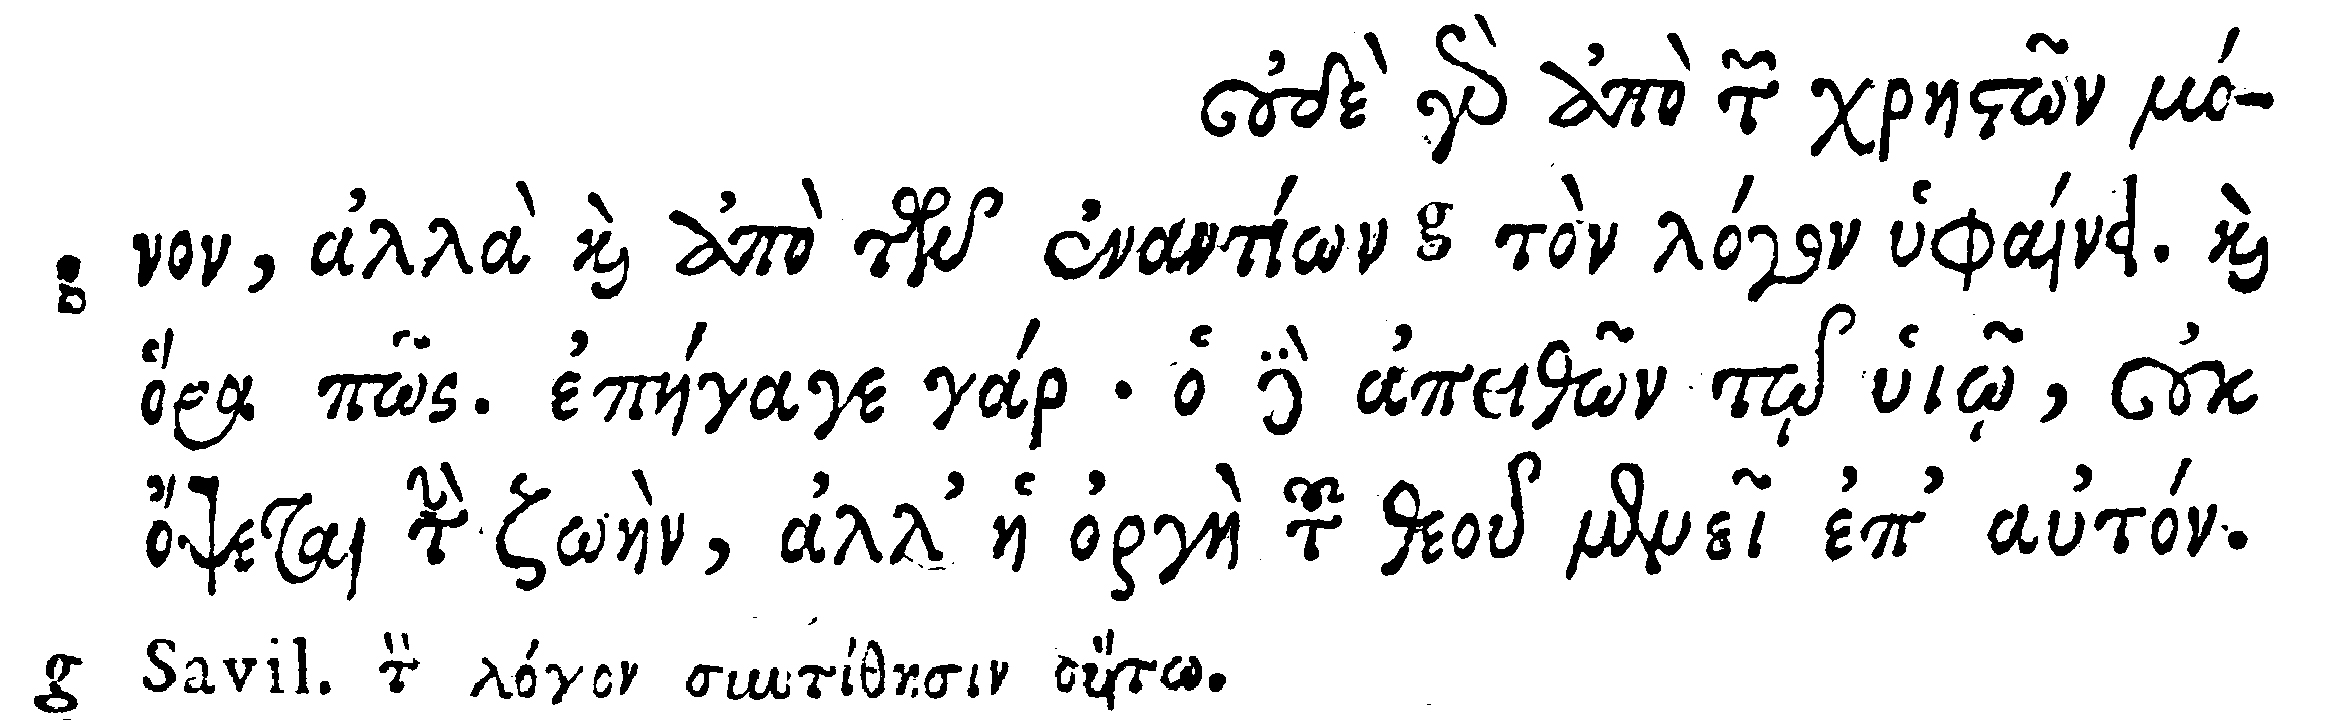 οὐδὲ γὰρ ἀπὸ τῶν χρηστῶν μό-
g νον, ἀλλὰ καὶ ἀπὸ τῶν ἐναντίων g τὸν λόγον ὑφαίνει. καὶ
ὅρα πῶς. ἐπήγαγε γάρ· ὁ δὲ ἀπειθῶν τῷ υἱῷ, οὐκ
ὄψεται τὴν ζωὴν, ἀλλ' ἡ ὀργὴ τοῦ θεοῦ μενεῖ ἐπ' αὐτόν.
g Savil. τὸν λόγον συντίθησιν οὕτω.